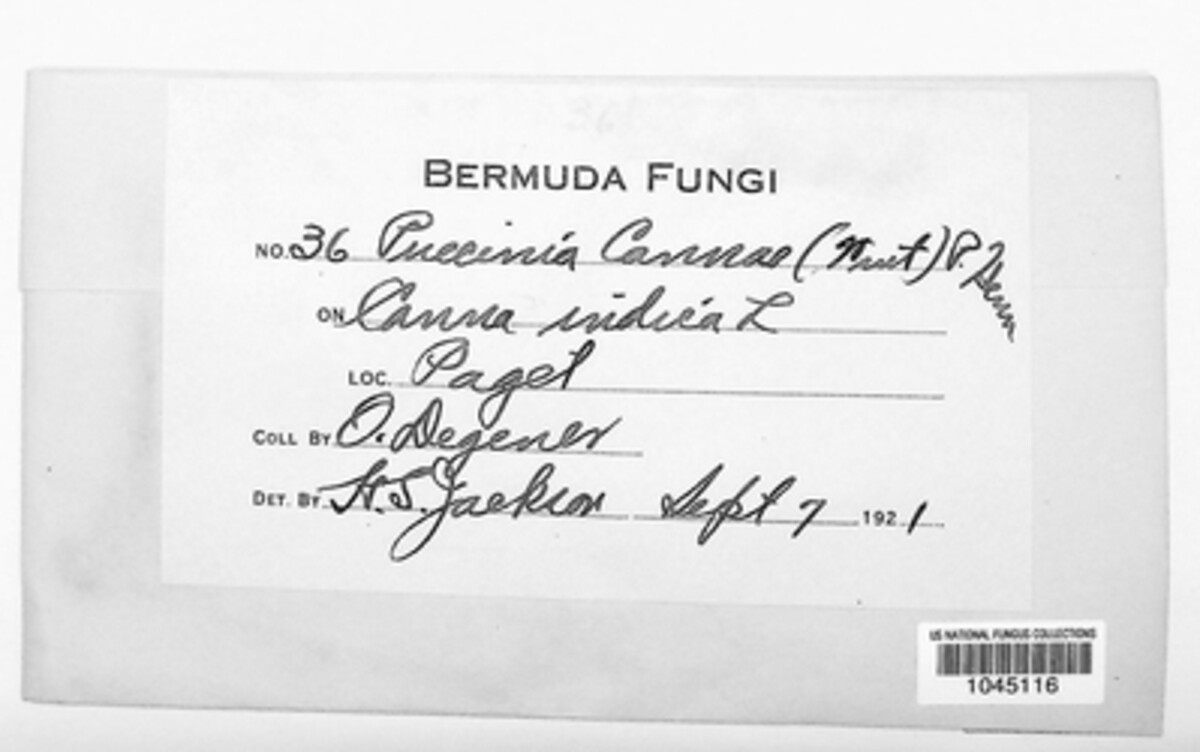 36
BERMUDA FUNGI
NO. 36 Puccinia Cannae (Wint) P. Henn
ON Canna indica L
LOC. Paget
COLL BY O. Degener
DET. BY H.S. Jackson Sept 7 1921
US NATIONAL FUNGUS COLLECTIONS
1045116